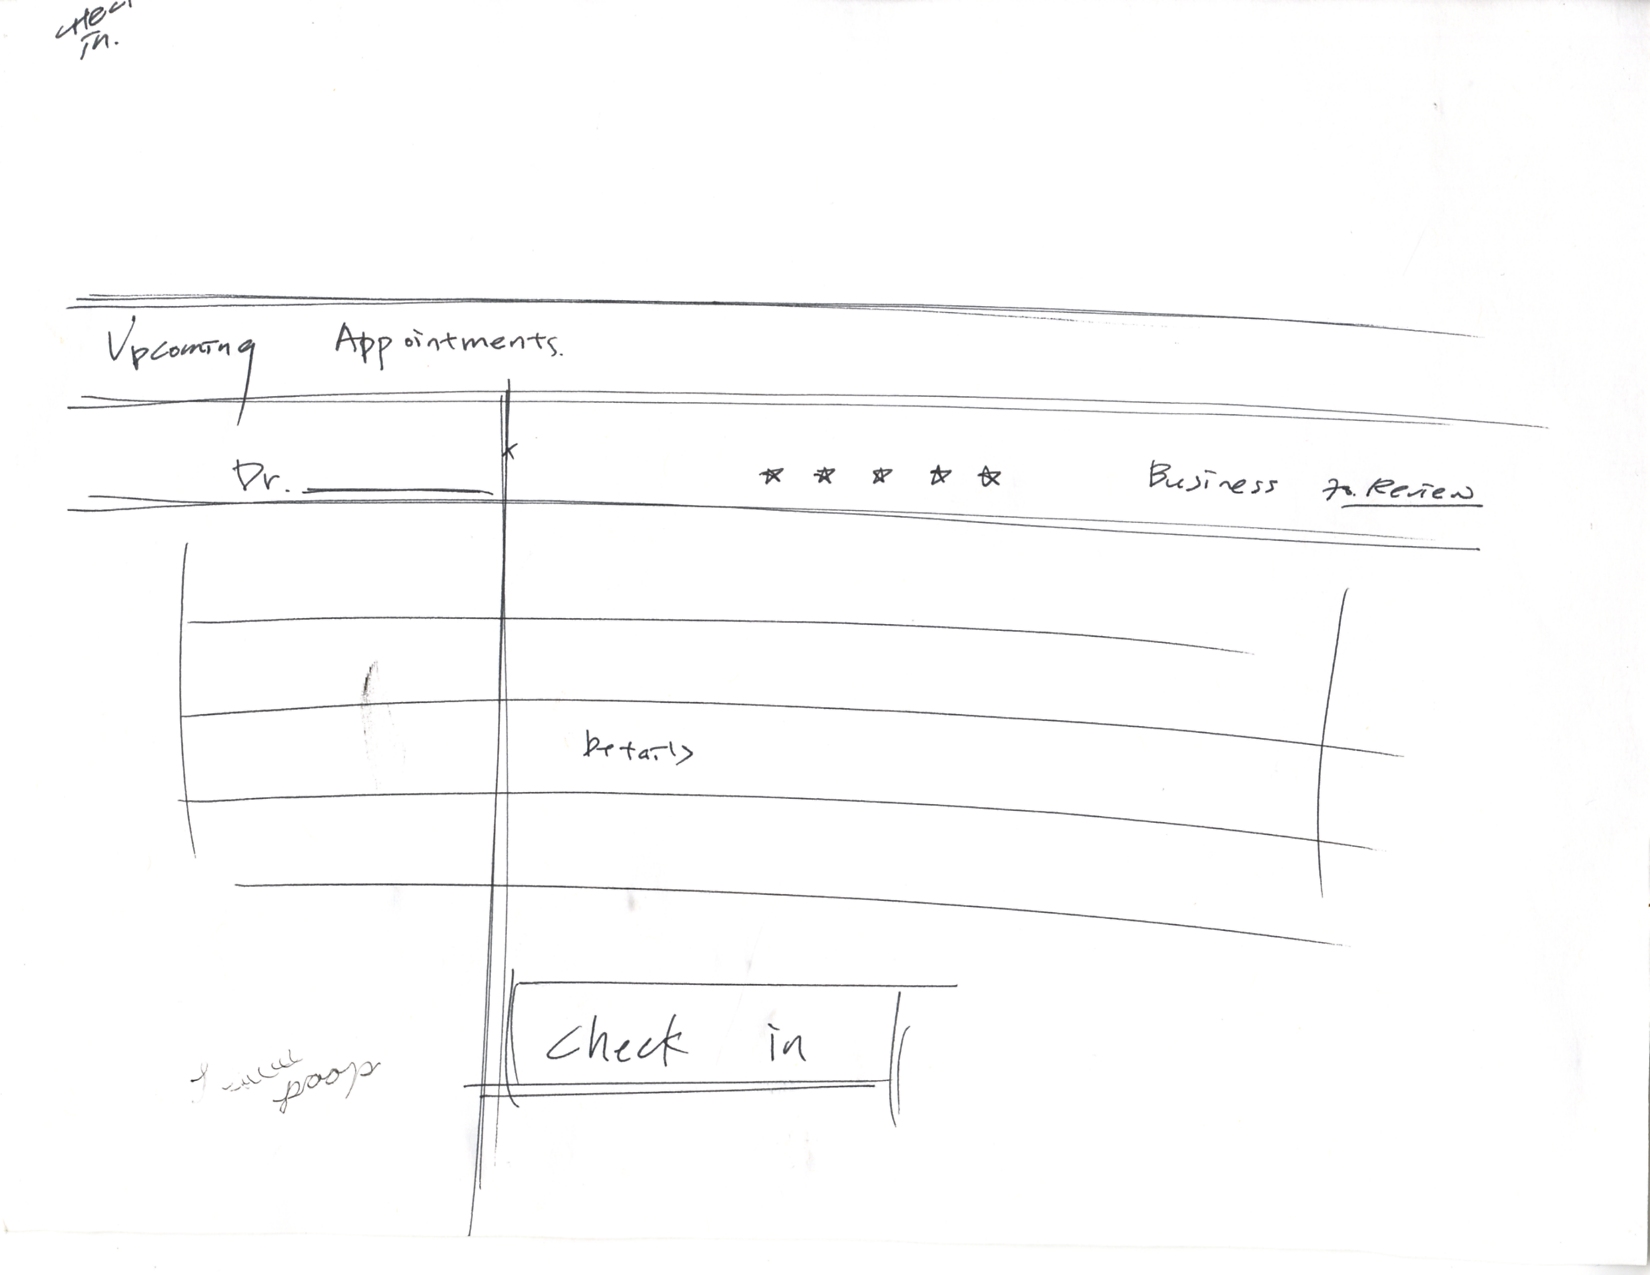 Check
In.
Upcoming Appointments.
Dr. ★ ★ ★ ★ ★ Business to Review
Details
Check in